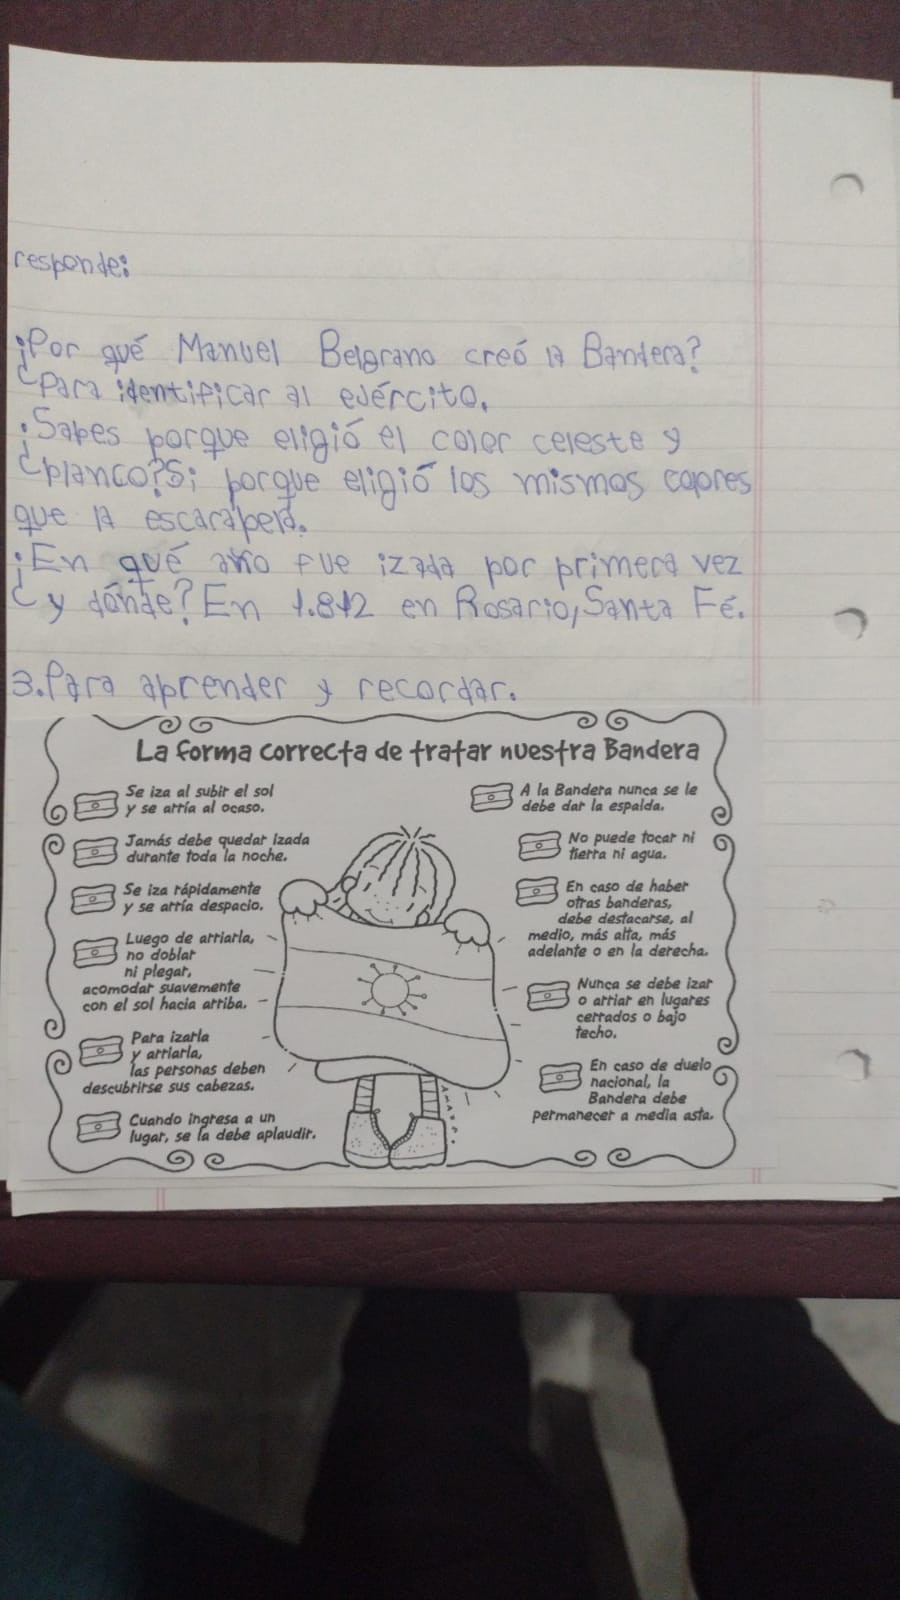 responde:
¿Por qué Manuel Belgrano creó la Bandera?
Para identificar al ejército.
¿Sabes porque eligió el color celeste y
blanco? Si; porque eligió los mismos colores
que la escarapela.
¿En qué año fue izada por primera vez
y dónde? En 1.812 en Rosario, Santa Fé.
3. Para aprender y recordar.
La forma correcta de tratar nuestra Bandera
Se iza al subir el sol
y se arría al ocaso.
Jamás debe quedar izada
durante toda la noche.
Se iza rápidamente
y se arría despacio.
Luego de arriarla,
no doblar
ni plegar,
acomodar suavemente
con el sol hacia arriba.
Para izarla
y arriarla,
las personas deben
descubrirse sus cabezas.
Cuando ingresa a un
lugar, se la debe aplaudir.
A la Bandera nunca se le
debe dar la espalda.
No puede tocar ni
tierra ni agua.
En caso de haber
otras banderas,
debe destacarse, al
medio, más alta, más
adelante o en la derecha.
Nunca se debe izar
o arriar en lugares
cerrados o bajo
techo.
En caso de duelo
nacional, la
Bandera debe
permanecer a media asta.